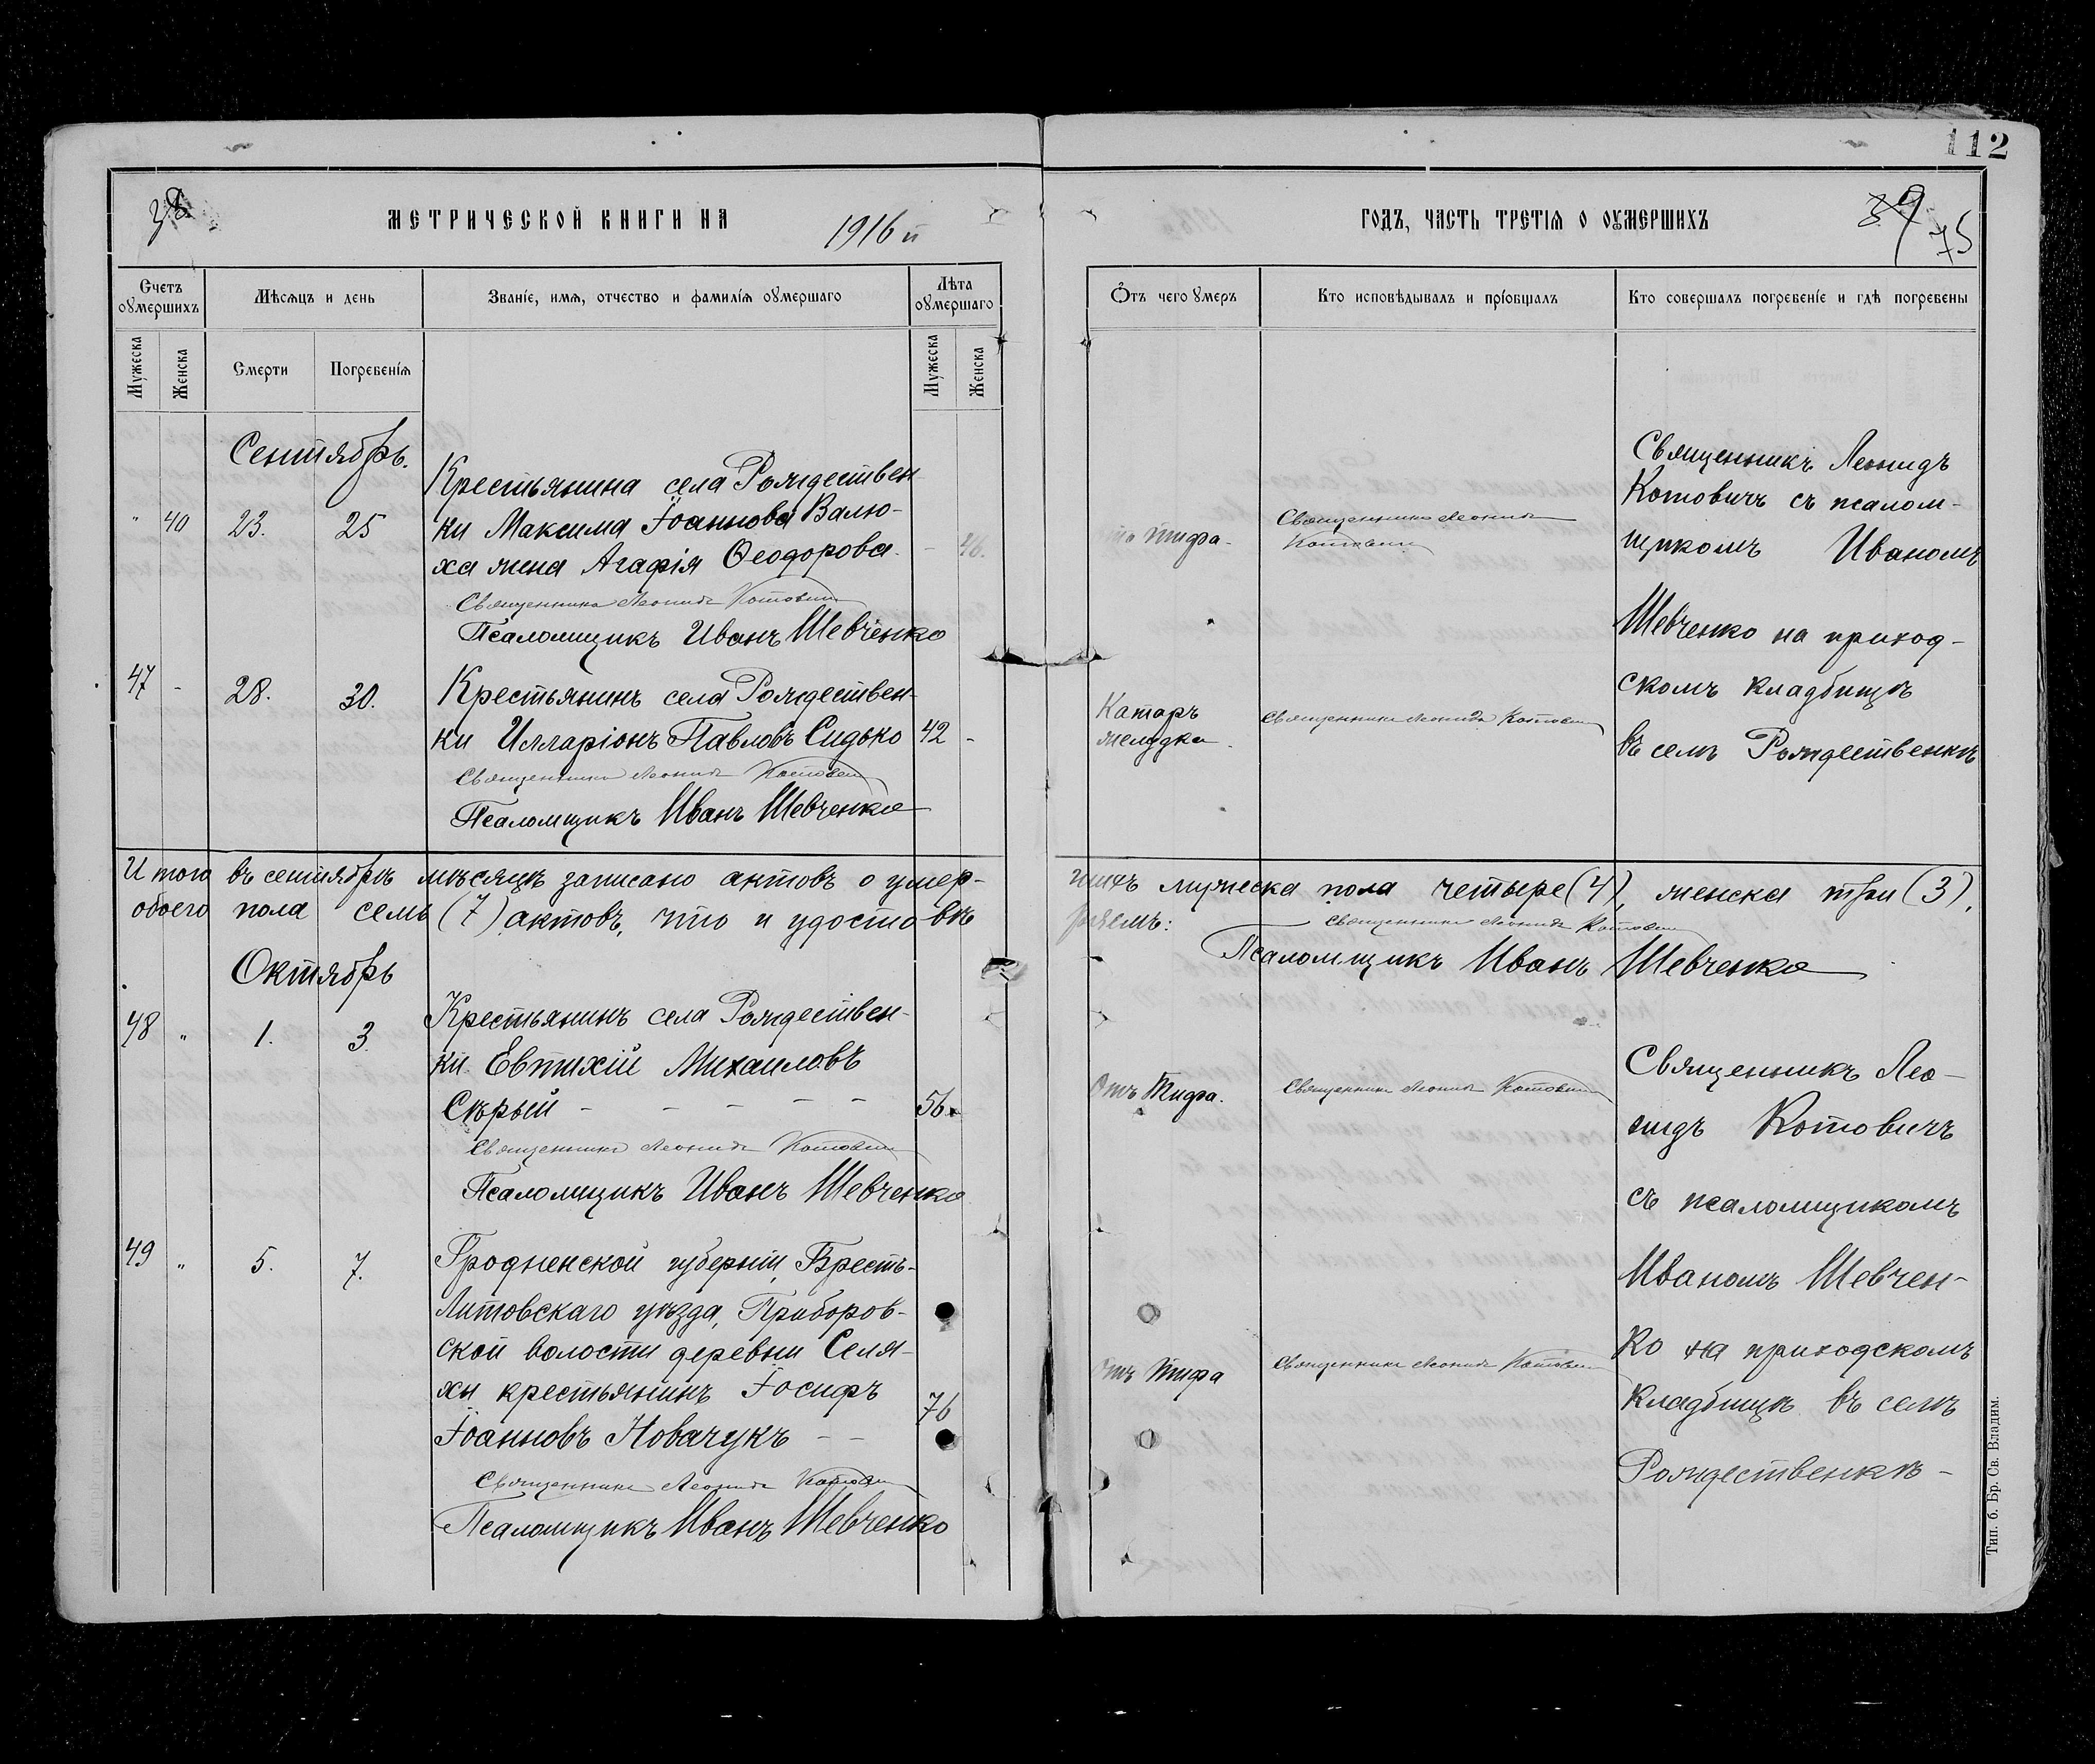 112
38
МЕТРИЧЕСКОЙ КНИГИ НА 1916 й
ГОДЪ, ЧАСТЬ ТРЕТІѦ О ОУМЕРШИХЪ
39
75
Счетъ оумершихъ
Мѣсѧцъ и день
Званіе, имѧ, отчество и фамиліѧ оумершаго
Лѣта оумершаго
Ѿтъ чего оумеръ
Кто исповѣдывалъ и пріобщалъ
Кто совершалъ погребеніе и гдѣ погребены
Мужеска
Женска
Смерти
Погребеніѧ
Мужеска
Женска
Сентябрь.
" 40 23. 25
Крестьянина села Рождествен
ки Максима Іоаннова Валю-
ха жена Агафія Ѳеодорова. - 46.
Священникъ Леонидъ Котович
Псаломщикъ Иванъ Шевченко
отъ тифа.
Священникъ Леонидъ
Котович
Священникъ Леонидъ
Котовичъ съ псалом-
щикомъ Иваномъ
Шевченко на приход-
скомъ кладбищѣ
въ селѣ Рождественкѣ
47 - 28. 30.
Крестьянинъ села Рождествен-
ки Илларіонъ Павловъ Сидько 42 -
Священникъ Леонидъ Котович
Псаломщикъ Иванъ Шевченко
Катаръ
желудка.
Священникъ Леонидъ Котович
Итого въ сентябрѣ мѣсяцѣ записано актовъ о умер-
шихъ мужеска пола четыре (4), женска три (3),
обоего пола семь (7) актовъ, что и удостовѣ
ряемъ:
Священникъ Леонидъ Котович
Псаломщикъ Иванъ Шевченко
Октябрь
48 " 1. 3.
Крестьянинъ села Рождествен-
ки Евтихій Михаиловъ
Сѣрый - - - - - 56.
Священникъ Леонидъ Котович
Псаломщикъ Иванъ Шевченко
Отъ Тифа.
Священникъ Леонидъ Котович
Священникъ Лео-
нидъ Котовичъ
съ псаломщикомъ
Иваномъ Шевчен-
ко на приходскомъ
кладбищѣ въ селѣ
Рождественкѣ -
49 " 5. 7.
Гродненской губерніи, Брестъ-
Литовскаго уѣзда, Приборов-
ской волости деревни Селя-
хи крестьянинъ Іосифъ 76
Іоанновъ Новачукъ - -
Священникъ Леонидъ Котович
Псаломщикъ Иванъ Шевченко
Отъ Тифа
Священникъ Леонидъ Котович
Тип. б. Бр. Св. Владим.